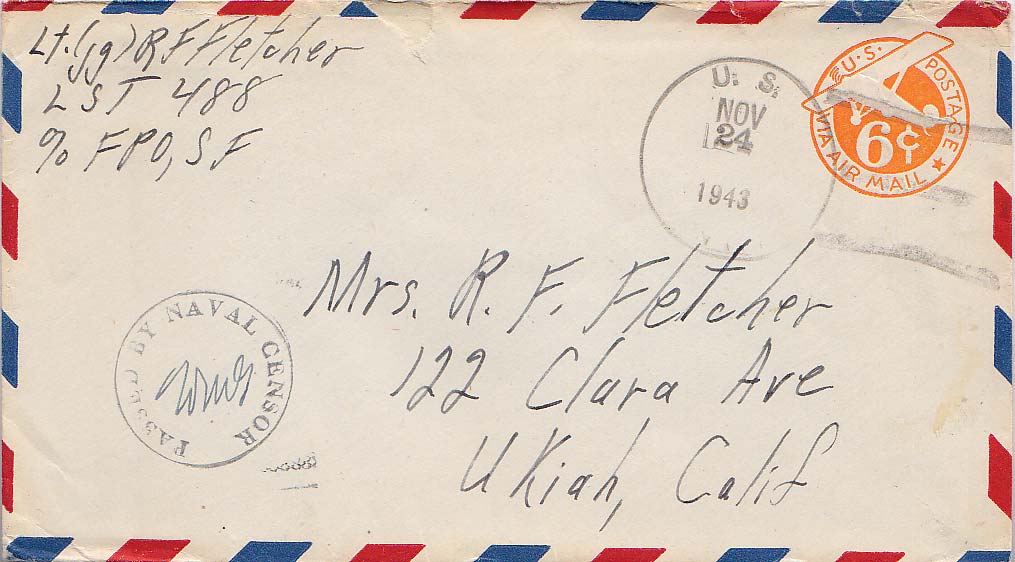 Lt.(jg) R F Fletcher
LST 488
% FPO, SF
U. S.
NOV
24
1943
U.S. POSTAGE
VIA AIR MAIL
6¢
Mrs. R. F. Fletcher
122 Clara Ave
Ukiah, Calif
PASSED BY NAVAL CENSOR